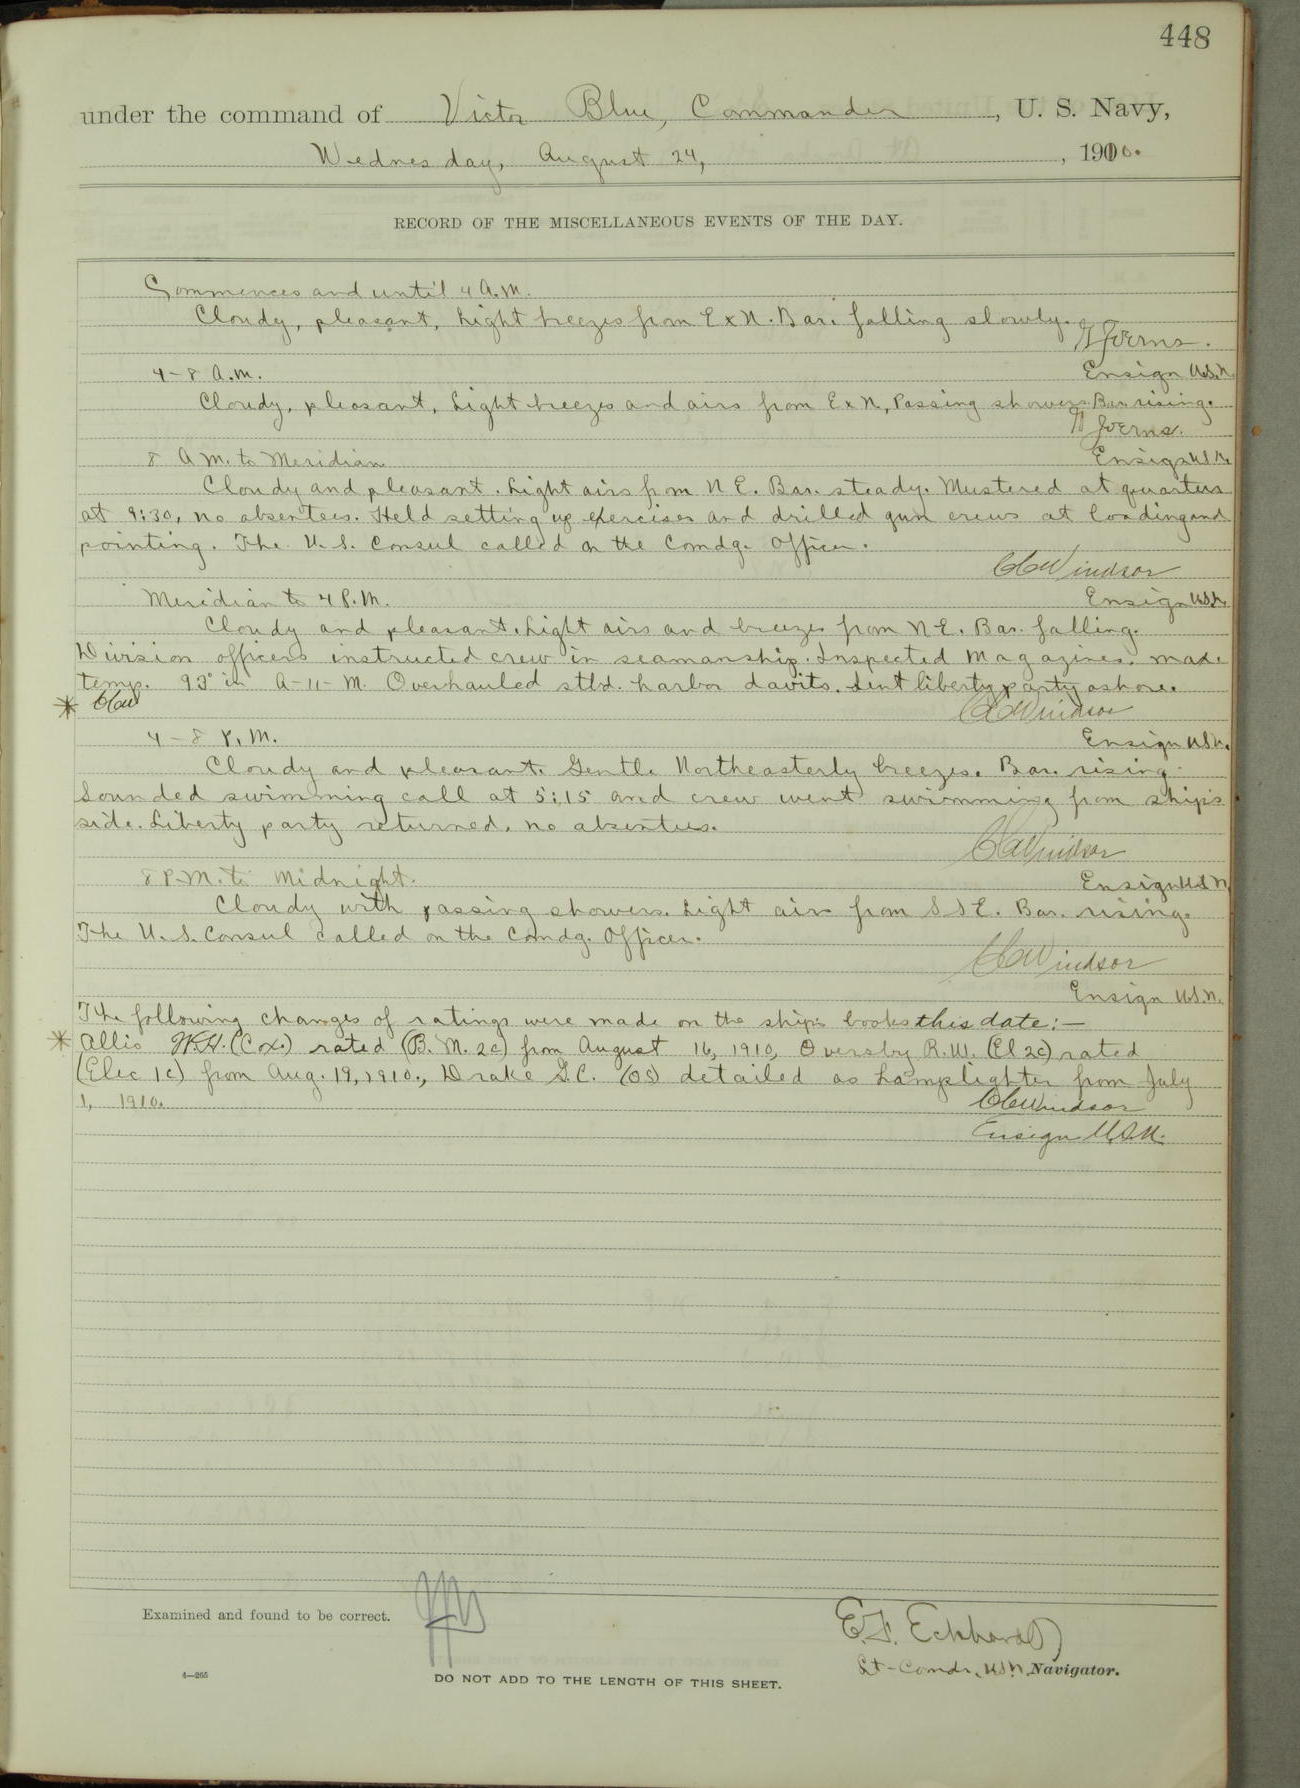 448
under the command of Victor Blue, Commander, U. S. Navy,
Wednesday, August 24, , 1910.
RECORD OF THE MISCELLANEOUS EVENTS OF THE DAY.
Commences and until 4 A.M.
Cloudy, pleasant, Light breezes from ExN. Bar. falling slowly.
Ensign U.S.N.
4-8 A.M.
Cloudy, pleasant, Light breezes and airs from ExN, Passing showers. Bar rising.
Ensign U.S.N.
8 A M. to Meridian
Cloudy and pleasant. Light airs from N E. Bar. steady. Mustered at quarters
at 9:30, no absentees. Held setting up exercises and drilled gun crews at loading and
pointing. The U. S. Consul called on the Comdg. Officer.
CCWindsor
Ensign U.S.N.
Meridian to 4 P.M.
Cloudy and pleasant. Light airs and breezes from N E. Bar. falling.
Division officers instructed crew in seamanship. Inspected Magazines. max.
temp. 93° in A-11-M. Overhauled stbd. harbor davits. Sent liberty party ashore.
* CCW
CCWindsor
Ensign U.S.N.
4-8 P.M.
Cloudy and pleasant. Gentle Northeasterly breezes. Bar. rising.
Sounded swimming call at 5:15 and crew went swimming from ship's
side. Liberty party returned, no absentees.
CCWindsor
Ensign U.S.N
8 P.M. to Midnight.
Cloudy with passing showers. Light airs from S S E. Bar. rising.
The U. S. Consul called on the Comdg. Officer.
CCWindsor
Ensign U.S.N.
The following changes of ratings were made on the ship's books this date:-
* Allis W.H. (Cox.) rated (B. M. 2c) from August 16, 1910, Oversby R.W. (El 2c) rated
(Elec 1c) from Aug. 19, 1910., Drake G.C. (OS) detailed as Lamplighter from July
1, 1910.
CCWindsor
Ensign U.S.N.
Examined and found to be correct.
E.F. Eckhardt
Lt-Comdr, U.S.N, Navigator.
4—265
DO NOT ADD TO THE LENGTH OF THIS SHEET.